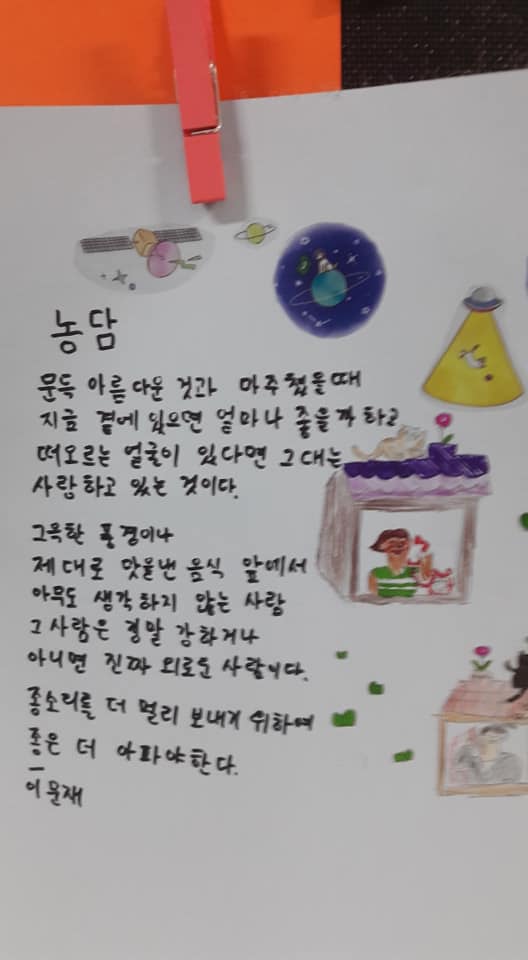 농담
문득 아름다운 것과 마주쳤을때
지금 곁에 있으면 얼마나 좋을까 하고
떠오르는 얼굴이 있다면 그대는
사랑하고 있는 것이다.
그윽한 풍경이나
제대로 맛을낸 음식 앞에서
아무도 생각하지 않는 사람
그사람은 정말 강하거나
아니면 진짜 외로운 사람이다.
종소리를 더 멀리 보내기 위하여
종은 더 아파야한다.
이문재